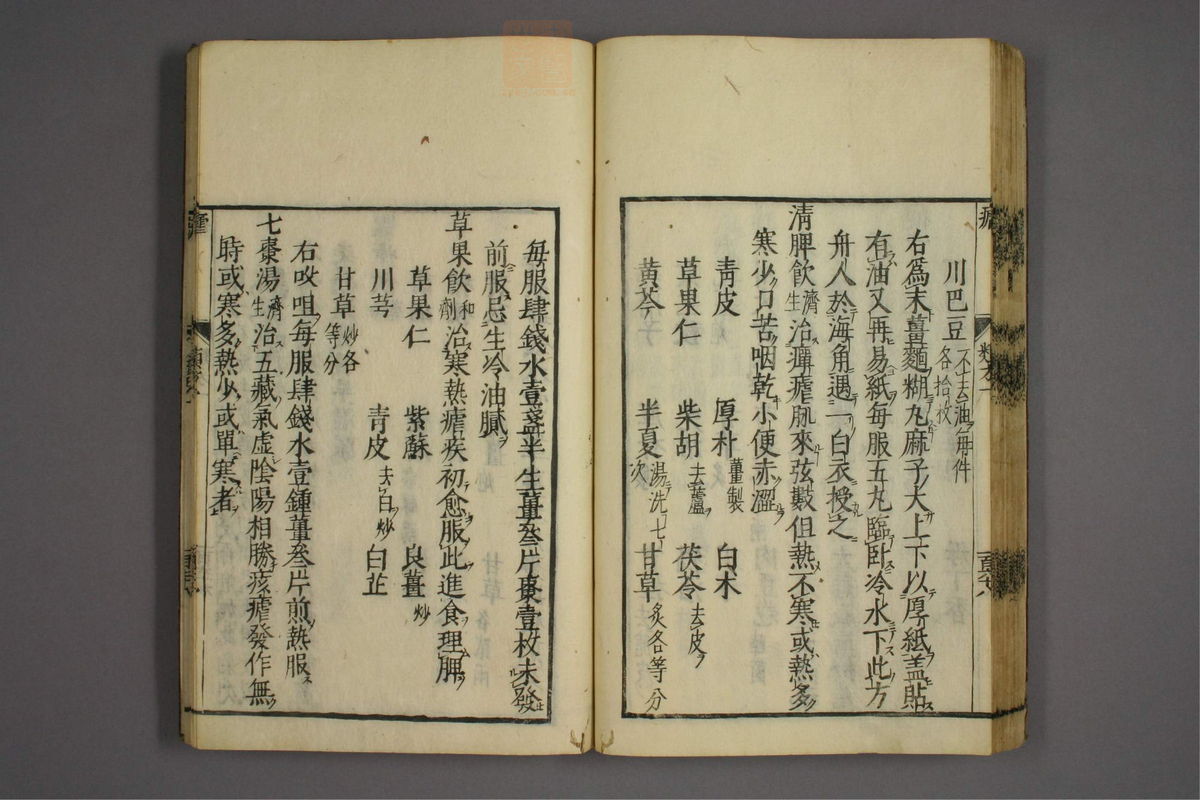 川巴豆不去油毎件各拾枚
右爲末薑麵糊丸麻子大上下以厚紙盖貼
有油又再易紙毎服五丸臨卧冷水下此方
舟人於海角遇一白衣授之
清脾飲濟生治癉瘧脉來弦數但熱不寒或熱多
寒少口苦咽乾小便赤澀
青皮 厚朴薑製 白术
草果仁 柴胡去蘆 茯苓去皮
黄芩 半夏湯洗七次 甘草炙各等分
毎服肆錢水壹盞半生薑叁片棗壹枚未發
前服忌生冷油膩
草果飲和劑治寒熱瘧疾初愈服此進食理脾
草果仁 紫蘇 良薑炒
川芎 青皮去白炒 白芷
甘草炒各等分
右㕮咀毎服肆錢水壹鍾薑叁片煎熱服
七棗湯濟生治五藏氣虚陰陽相勝痎瘧發作無
時或寒多熱少或單寒者